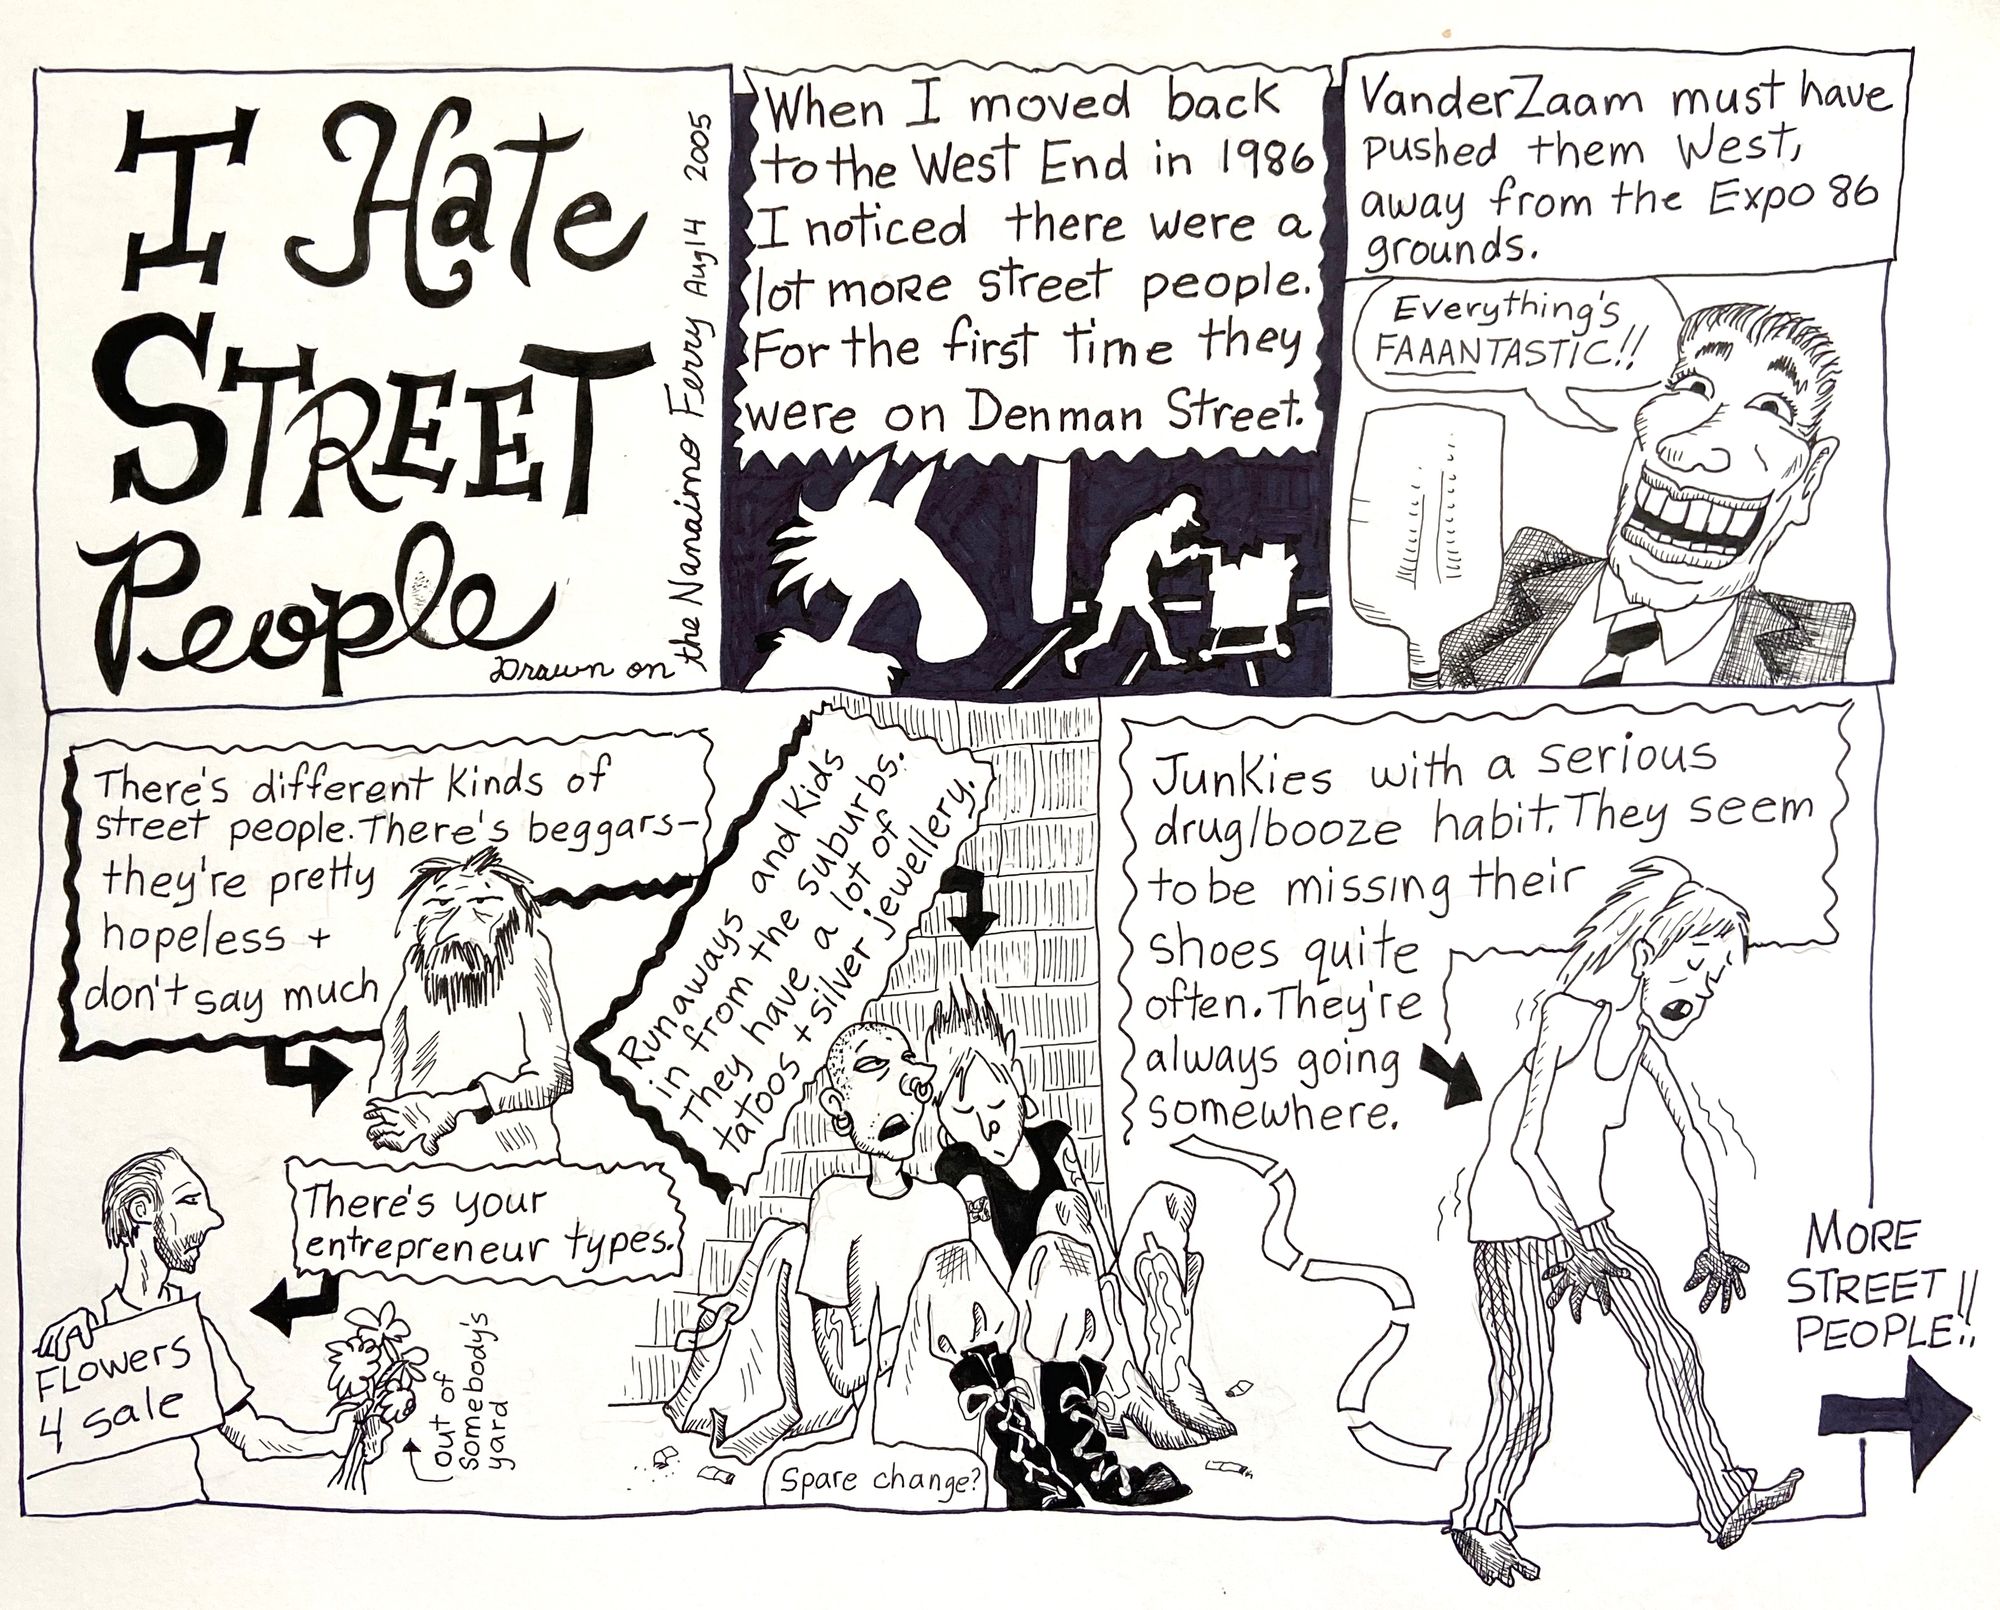 I Hate
STREET
People
Drawn on
the Nanaimo Ferry Aug 14 2005
When I moved back
to the West End in 1986
I noticed there were a
lot more street people.
For the first time they
were on Denman Street.
VanderZaam must have
pushed them West,
away from the Expo 86
grounds.
Everything's
FAAANTASTIC!!
There's different kinds of
street people. There's beggars-
they're pretty
hopeless +
don't say much
There's your
entrepreneur types.
FLOWERS
4 sale
out of
somebody's
yard
Runaways and kids
in from the suburbs.
They have a lot of
tatoos + silver jewellery.
Spare change?
Junkies with a serious
drug/booze habit. They seem
to be missing their
shoes quite
often. They're
always going
somewhere.
MORE
STREET
PEOPLE!!